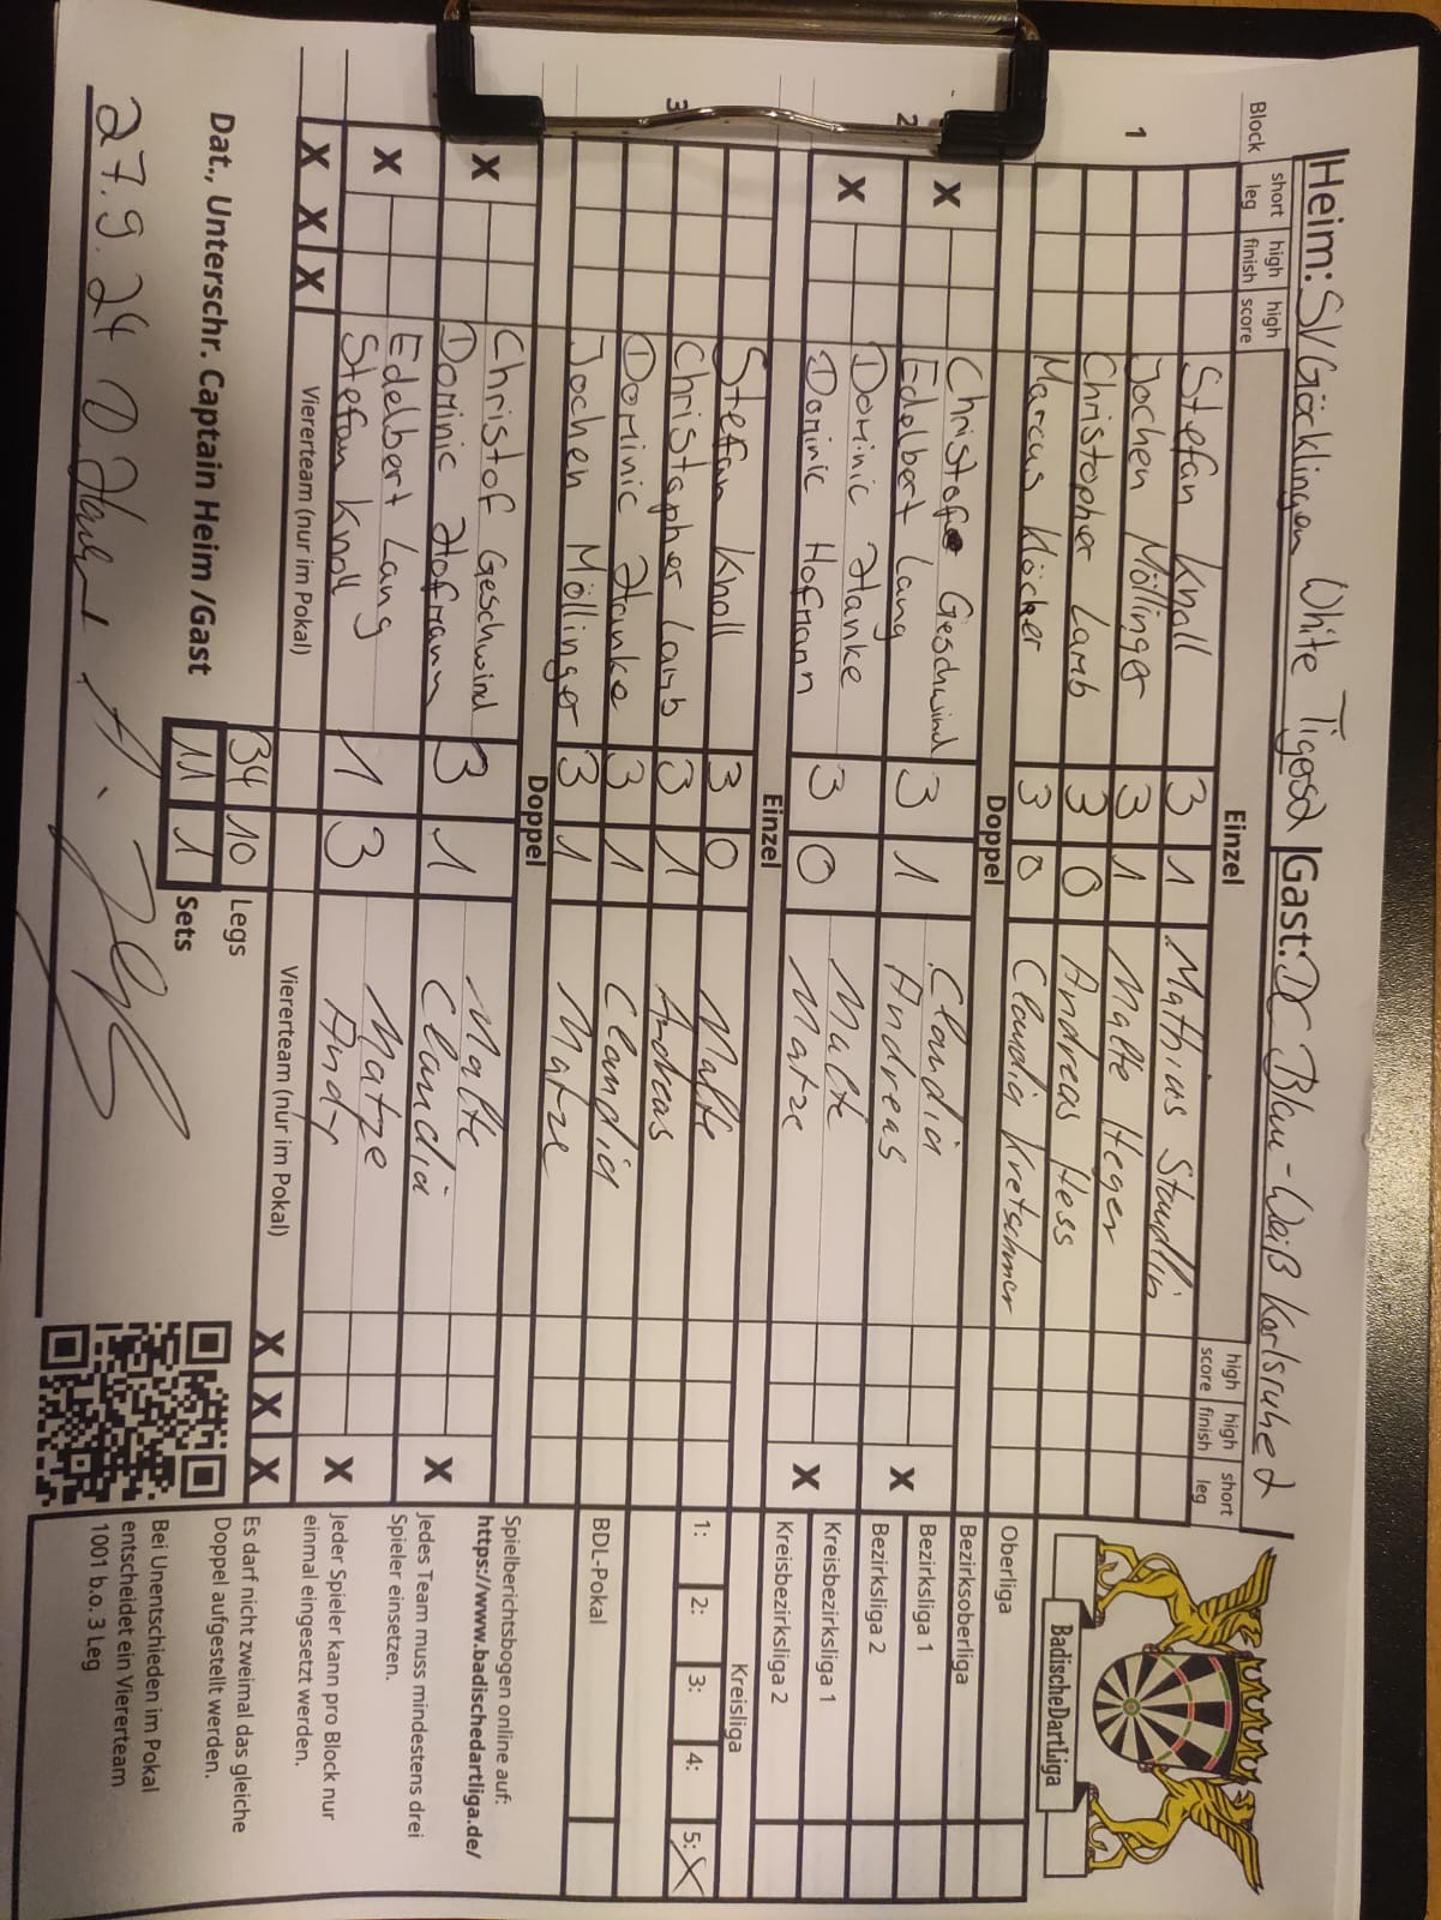 Heim: SV Göcklingen White Tigers 2 Gast: DC Blau-Weiß Karlsruhe 2
Block short leg high finish high score Einzel high score high finish short leg
1
Stefan Knoll 3 1 Mathias Staudlin
Jochen Möllinger 3 1 Malte Heger
Christopher Lamb 3 0 Andreas Hess
Marcus Klöcker 3 0 Claudia Kretschmer
Doppel
2
X Christof Geschwind 3 1 Claudia X
Edelbert Lang Andreas
X Dominic Hanke 3 0 Malte X
Dominic Hofmann Matze
Einzel
3
Stefan Knoll 3 0 Malte
Christopher Lamb 3 1 Andreas
Dominic Hanke 3 1 Claudia
Jochen Möllinger 3 1 Matze
Doppel
X Christof Geschwind 3 1 Malte X
Dominic Hofmann Claudia
X Edelbert Lang 1 3 Matze X
Stefan Knoll Andy
X X X Viererteam (nur im Pokal) Viererteam (nur im Pokal) X X X
34 10 Legs
Dat., Unterschr. Captain Heim /Gast 11 1 Sets
27.9.24
BadischeDartLiga
Oberliga
Bezirksoberliga
Bezirksliga 1
Bezirksliga 2
Kreisbezirksliga 1
Kreisbezirksliga 2
Kreisliga
1: 2: 3: 4: 5: X
BDL-Pokal
Spielberichtsbogen online auf:
https://www.badischedartliga.de/
Jedes Team muss mindestens drei
Spieler einsetzen.
Jeder Spieler kann pro Block nur
einmal eingesetzt werden.
Es darf nicht zweimal das gleiche
Doppel aufgestellt werden.
Bei Unentschieden im Pokal
entscheidet ein Viererteam
1001 b.o. 3 Leg